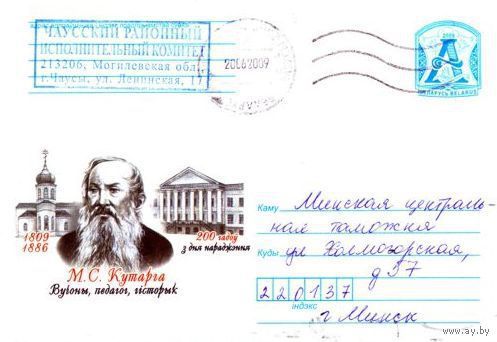 ЧАУССКИЙ РАЙОННЫЙ
ИСПОЛНИТЕЛЬНЫЙ КОМИТЕТ
213206, Могилевская обл.
г.Чаусы, ул. Ленинская, 17
20062009
2009
А
БЕЛАРУСЬ BELARUS
1809
1886
200 гадоў
з дня нараджэння
М.С. Кутарга
Вучоны, педагог, гісторык
Каму Минская централь-
ная таможня
Куды ул Холмогорская,
д 57
220137
індэкс
г Минск
www.ay.by